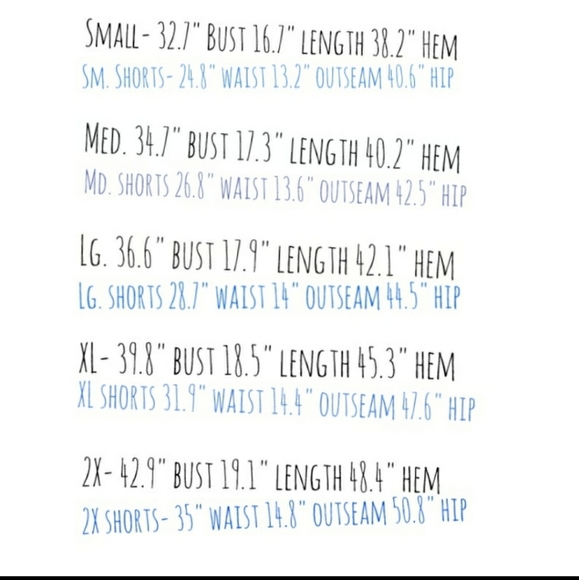 SMALL- 32.7" BUST 16.7" LENGTH 38.2" HEM
SM. SHORTS- 24.8" WAIST 13.2" OUTSEAM 40.6" HIP
MED. 34.7" BUST 17.3" LENGTH 40.2" HEM
MD. SHORTS 26.8" WAIST 13.6" OUTSEAM 42.5" HIP
LG. 36.6" BUST 17.9" LENGTH 42.1" HEM
LG. SHORTS 28.7" WAIST 14" OUTSEAM 44.5" HIP
XL- 39.8" BUST 18.5" LENGTH 45.3" HEM
XL SHORTS 31.9" WAIST 14.4" OUTSEAM 47.6" HIP
2X- 42.9" BUST 19.1" LENGTH 48.4" HEM
2X SHORTS- 35" WAIST 14.8" OUTSEAM 50.8" HIP